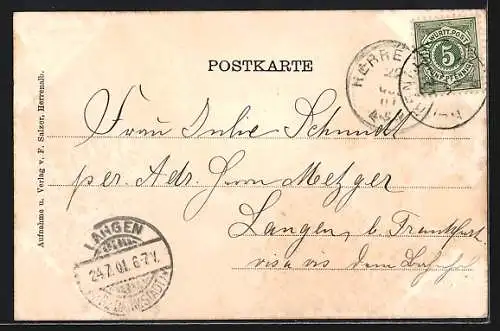 POSTKARTE
K. WÜRTT. POST
5
FÜNF PFENNIG
HERRE
Frau Julie Schmidt
per. Adr. Herrn Metzger
Langen, b. Frankfurt
vis a vis dem Bahnhof
LANGEN
24.7.01. 6-7V.
Aufnahme u. Verlag v. F. Salzer, Herrenalb.